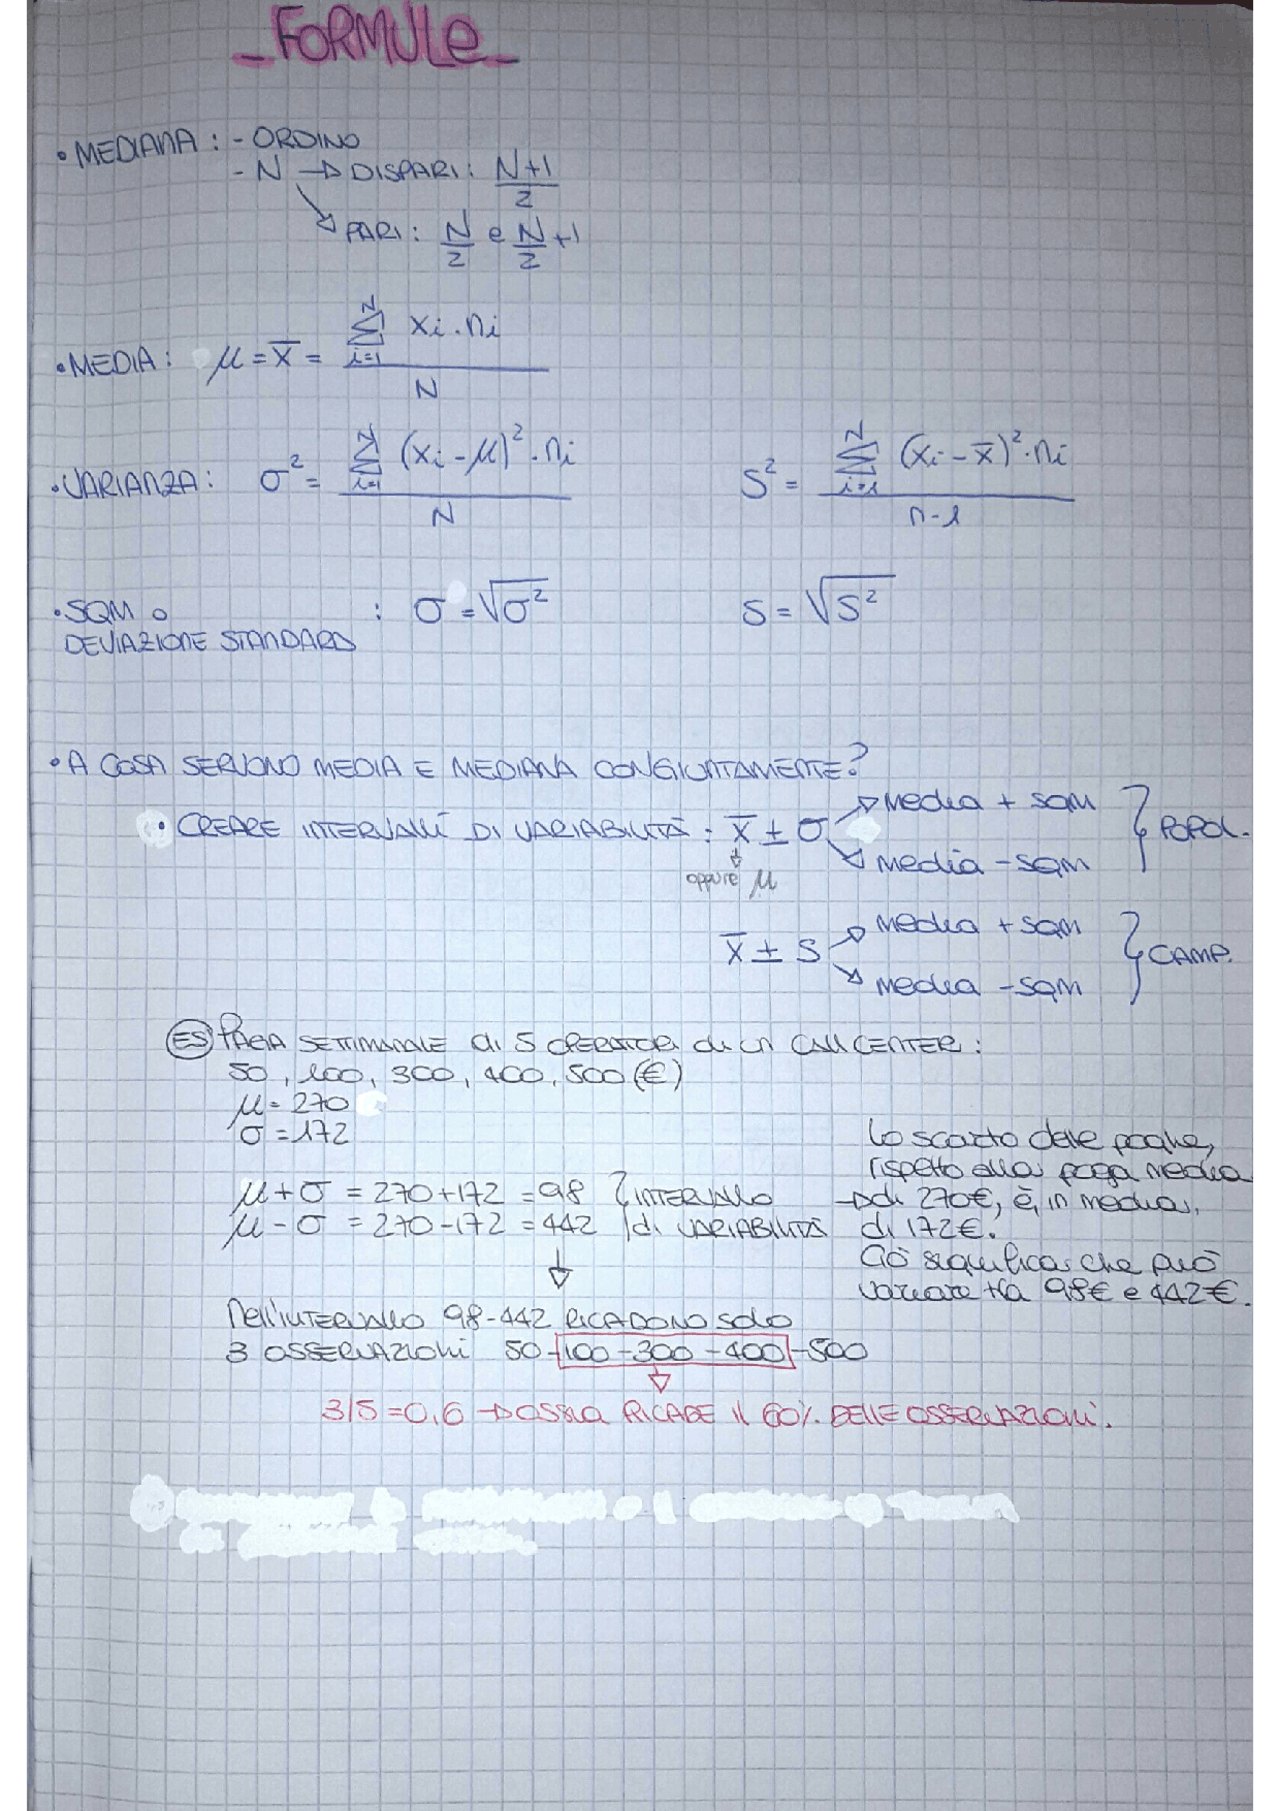 _FORMULE_
• MEDIANA : - ORDINO
- N → DISPARI : N+1/2
↘ PARI : N/2 e N/2+1
• MEDIA : μ = x̄ = ∑ᵢ₌₁ᴺ xi · ni / N
• VARIANZA : σ² = ∑ᵢ₌₁ᴺ (xi - μ)² · ni / N    S² = ∑ᵢ₌₁ᴺ (xi - x̄)² · ni / n-1
• SQM o DEVIAZIONE STANDARD : σ = √σ²    S = √S²
• A COSA SERVONO MEDIA E MEDIANA CONGIUNTAMENTE?
• CREARE INTERVALLI DI VARIABILITÀ : x̄ ± σ
↗ media + SQM
↘ media - SQM
} POPOL.
↓ oppure μ
x̄ ± S
↗ media + SQM
↘ media - SQM
} CAMP.
ES PAGA SETTIMANALE di 5 OPERATORI di un CALL CENTER :
50, 100, 300, 400, 500 (€)
μ = 270
σ = 172
μ + σ = 270+172 = 98 } INTERVALLO
μ - σ = 270-172 = 442 di VARIABILITÀ
→ Lo scarto delle paghe,
rispetto alla paga media
di 270€, è, in media,
di 172€.
Ciò significa che può
variare tra 98€ e 442€.
↓
Nell'INTERVALLO 98-442 RICADONO SOLO
3 OSSERVAZIONI 50-100-300-400-500
↓
3/5 = 0,6 → OSSIA RICADE il 60% DELLE OSSERVAZIONI.